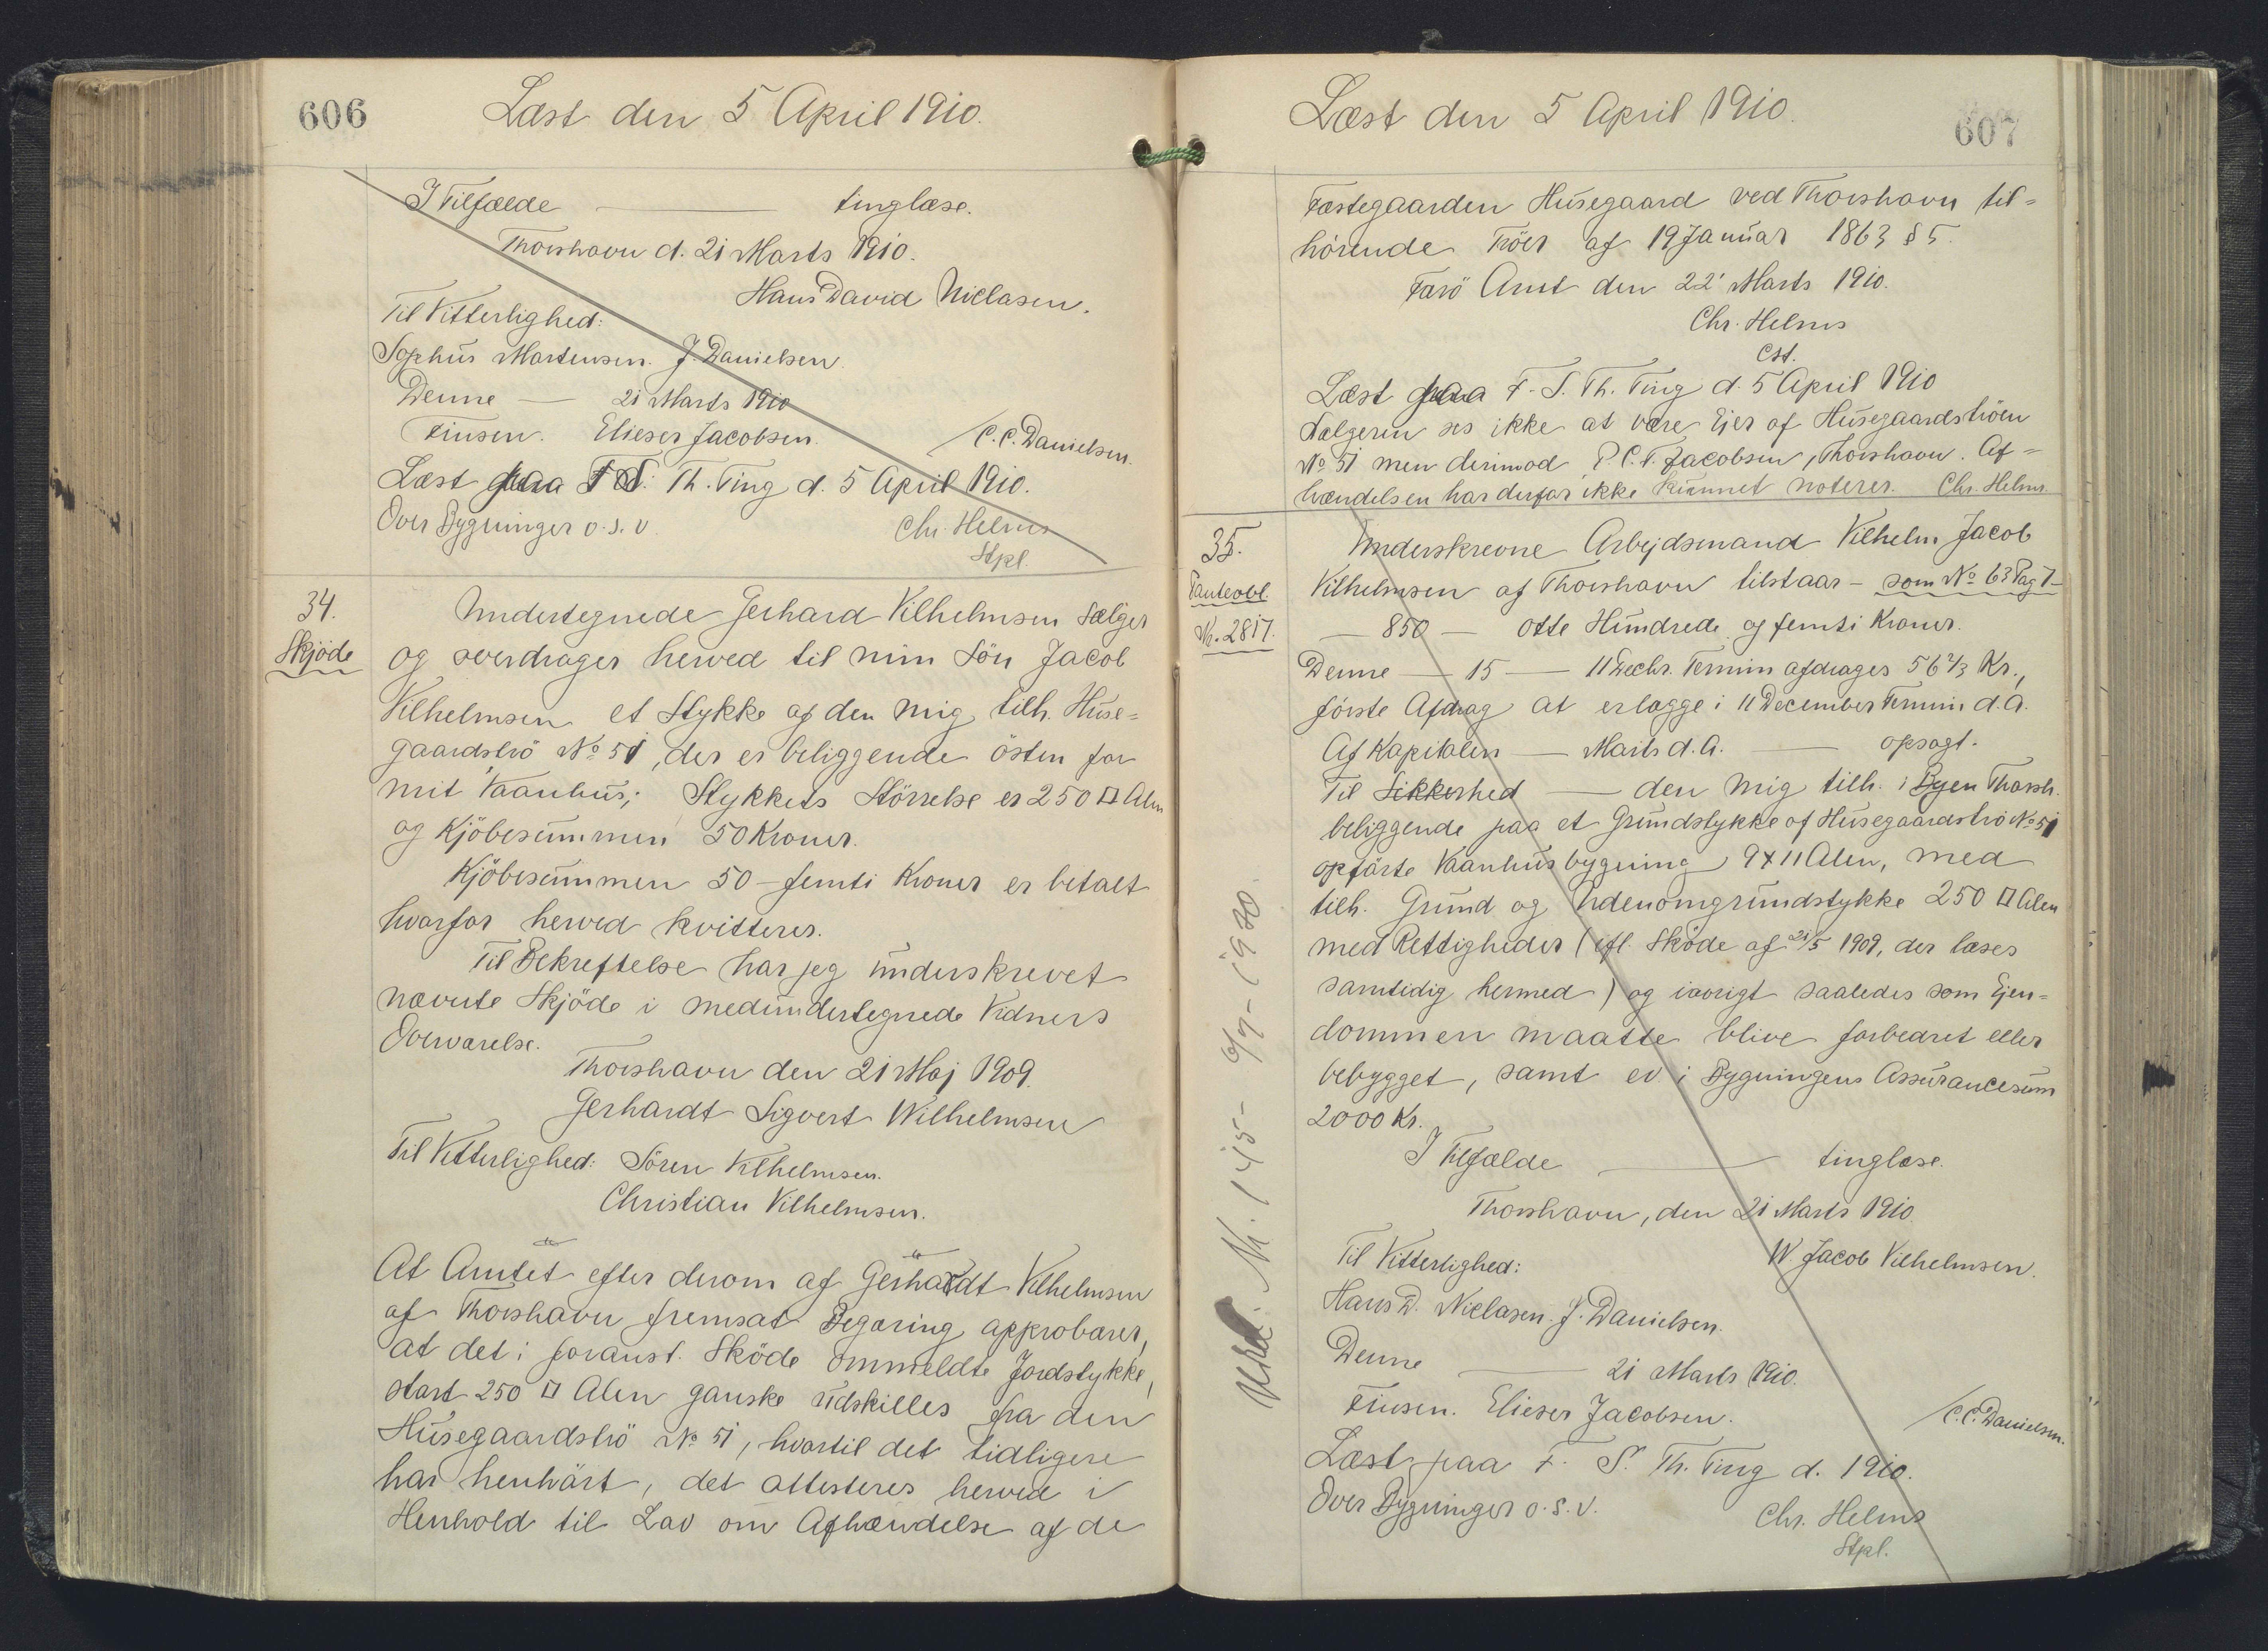 606
Læst den 5 April 1910.
I Tilfælde — tinglæse.
Thorshavn d. 21 Marts 1910.
Hans David Niclasen.
Til Vitterlighed:
Sophus Martensen. J. Danielsen.
Denne — 21 Marts 1910
Finsen. Elieser Jacobsen.
/C. C. Danielsen.
Læst paa F. S. Th. Ting d. 5 April 1910.
Over Bygninger o.s.v
Chr. Helms
Stpl.
34.
Skjöde
Undertegnede Gerhard Vilhelmsen sælger
og overdrager herved til min Sön Jacob
Vilhelmsen et Stykke af den mig tilh. Huse=
gaardströ No 51, der er beliggende östen for
mit Vaanhus; Stykkets Störrelse er 250 □ Alen
og Kjöbesummen 50 Kroner.
Kjöbesummen 50 - femti Kroner er betalt
hvorfor herved kvitteres.
Til Bekreftelse har jeg underskrevet
nævnte Skjöde i medundertegnede Vidners
Overværelse.
Thorshavn den 21 Maj 1909.
Gerhardt Sigvert Wilhelmsen
Til Vitterlighed: Sören Vilhelmsen.
Christian Vilhelmsen.
At Amtet efter derom af Gerhardt Vilhelmsen
af Thorshavn fremsat Begæring approberer,
at det i foranst. Sköde ommeldte Jordstykke,
stort 250 □ Alen ganske udskilles fra den
Husegaardströ No 51, hvortil det tidligere
har henhört, det attesteres herved i
Henhold til Lov om Afhændelse af de
Læst den 5 April 1910.
607
Fæstegaarden Husegaard ved Thorshavn til=
hörende Tröer af 19 Januar 1863 § 5.
Færö Amt den 22' Marts 1910.
Chr. Helms
Cst.
Læst paa F. S. Th. Ting d. 5 April 1910
Sælgeren ses ikke at være Ejer af Husegaardströen
No 51 men derimod P. C. T. Jacobsen, Thorshavn. Af=
hændelsen har derfor ikke kunnet noteres. Chr. Helms.
35.
Panteobl.
No. 2817.
Underskrevne Arbejdsmand Vilhelm Jacob
Vilhelmsen af Thorshavn tilstaar - som No 63 Pag 7 -
— 850 — otte Hundrede og femti Kroner.
Denne — 15 — 11 Decbr. Termin afdrages 56 2/3 Kr.,
förste Afdrag at erlægge i 11 December Termin d. A.
Af Kapitalen — Marts d. A. — opsagt.
Til Sikkerhed — den mig tilh. i Byen Thorsh.
beliggende paa et Grundstykke af Husegaardströ No 51
opförte Vaanhusbygning 9 x 11 Alen, med
tilh. Grund og Udenomgrundstykke 250 □ Alen
med Rettigheder (ifl. Sköde af 21/5 1909, der læses
samtidig hermed) og iøvrigt saaledes som Ejen=
dommen maatte blive forbedret eller
bebygget, samt ev. i Bygningens Assurancesum
2000 Kr.
I Tilfælde — tinglæse.
Thorshavn, den 21 Marts 1910
W Jacob Vilhelmsen.
Til Vitterlighed:
Hans D. Niclasen. J. Danielsen.
Denne — 21 Marts 1910.
Finsen. Elieser Jacobsen.
/C. C. Danielsen.
Læst paa F. S. Th. Ting d. 1910.
Over Bygninger o.s.v.
Chr. Helms
Stpl.
Nr. 145 - 6/7 - 1930.